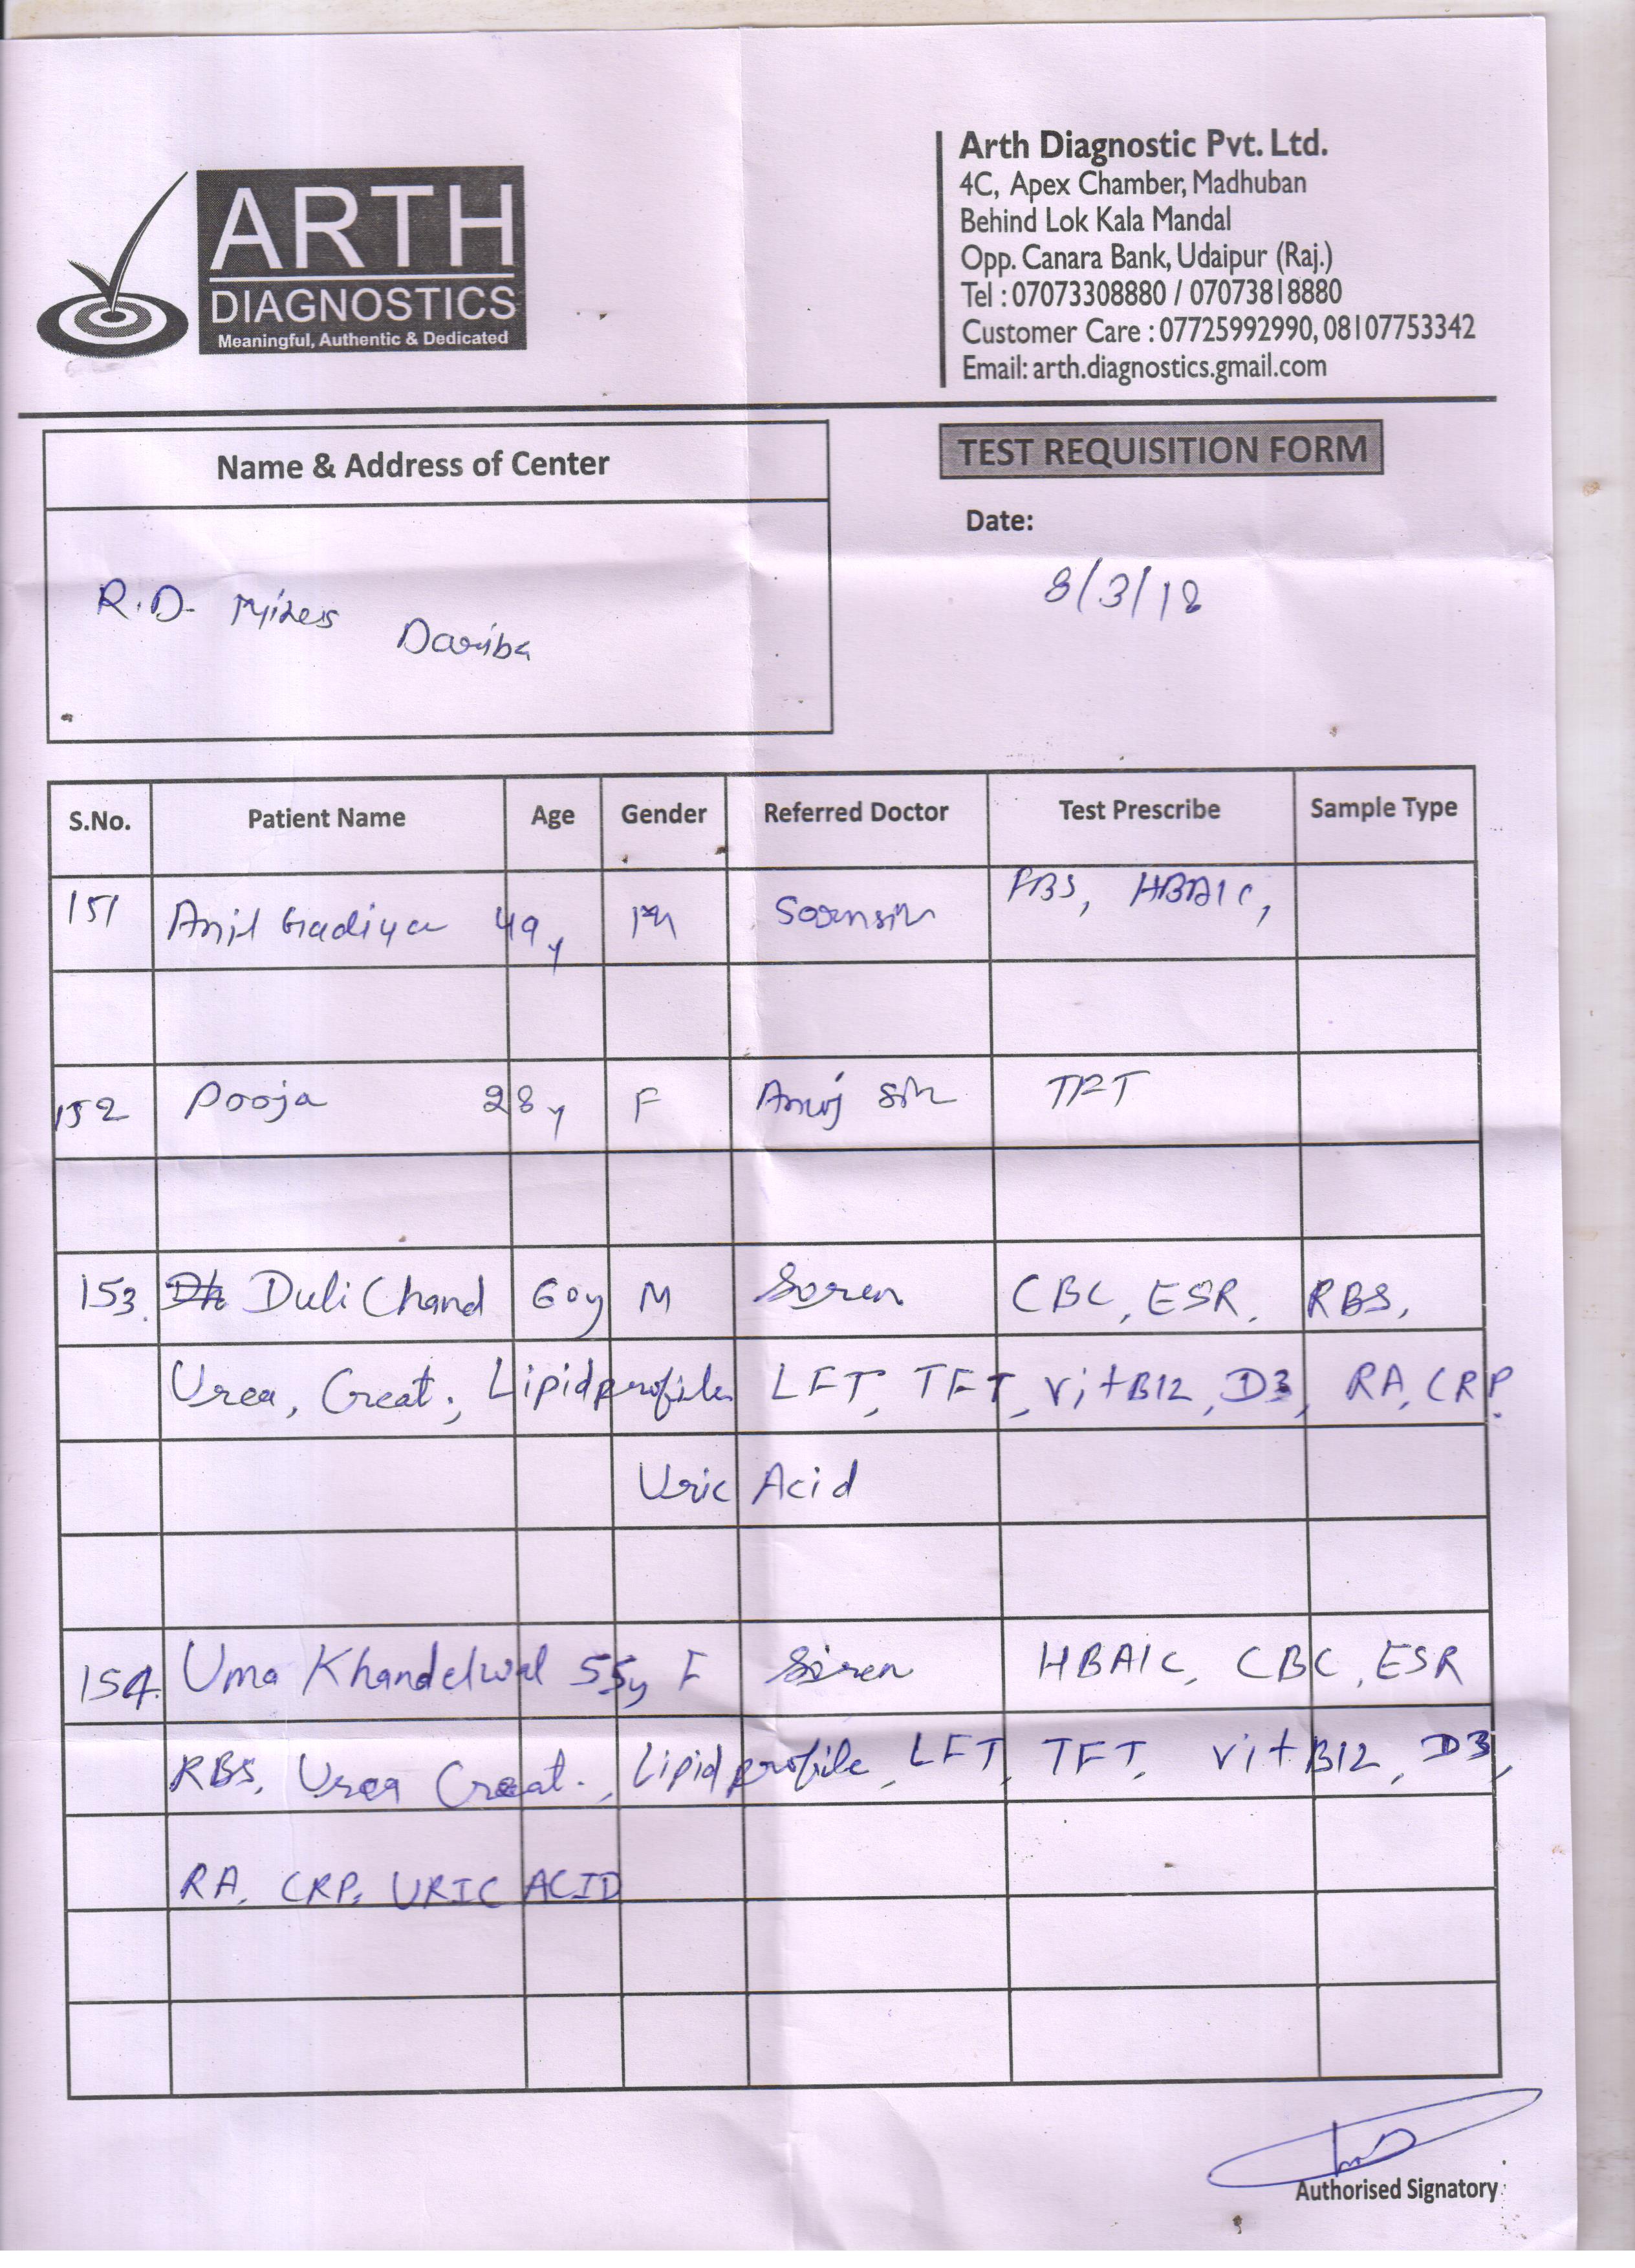 ARTH
DIAGNOSTICS
Meaningful, Authentic & Dedicated
Arth Diagnostic Pvt. Ltd.
4C, Apex Chamber, Madhuban
Behind Lok Kala Mandal
Opp. Canara Bank, Udaipur (Raj.)
Tel : 07073308880 / 07073818880
Customer Care : 07725992990, 08107753342
Email: arth.diagnostics.gmail.com
Name & Address of Center
R.D. Mines Dariba
TEST REQUISITION FORM
Date:
8/3/18
S.No. Patient Name Age Gender Referred Doctor Test Prescribe Sample Type
151 Anil Gadiya 49y M HBA1C,
152 Pooja 28y F Anuj Sir TFT
153. Duli Chand 60y M Soren CBC, ESR, RBS,
Urea, Creat., Lipid profile, LFT, TFT, Vit B12, D3, RA, CRP,
Uric Acid
154. Uma Khandelwal 55y F Soren HBA1C, CBC, ESR
RBS, Urea Creat., Lipid profile, LFT, TFT, Vit B12, D3,
RA, CRP, URIC ACID
Authorised Signatory